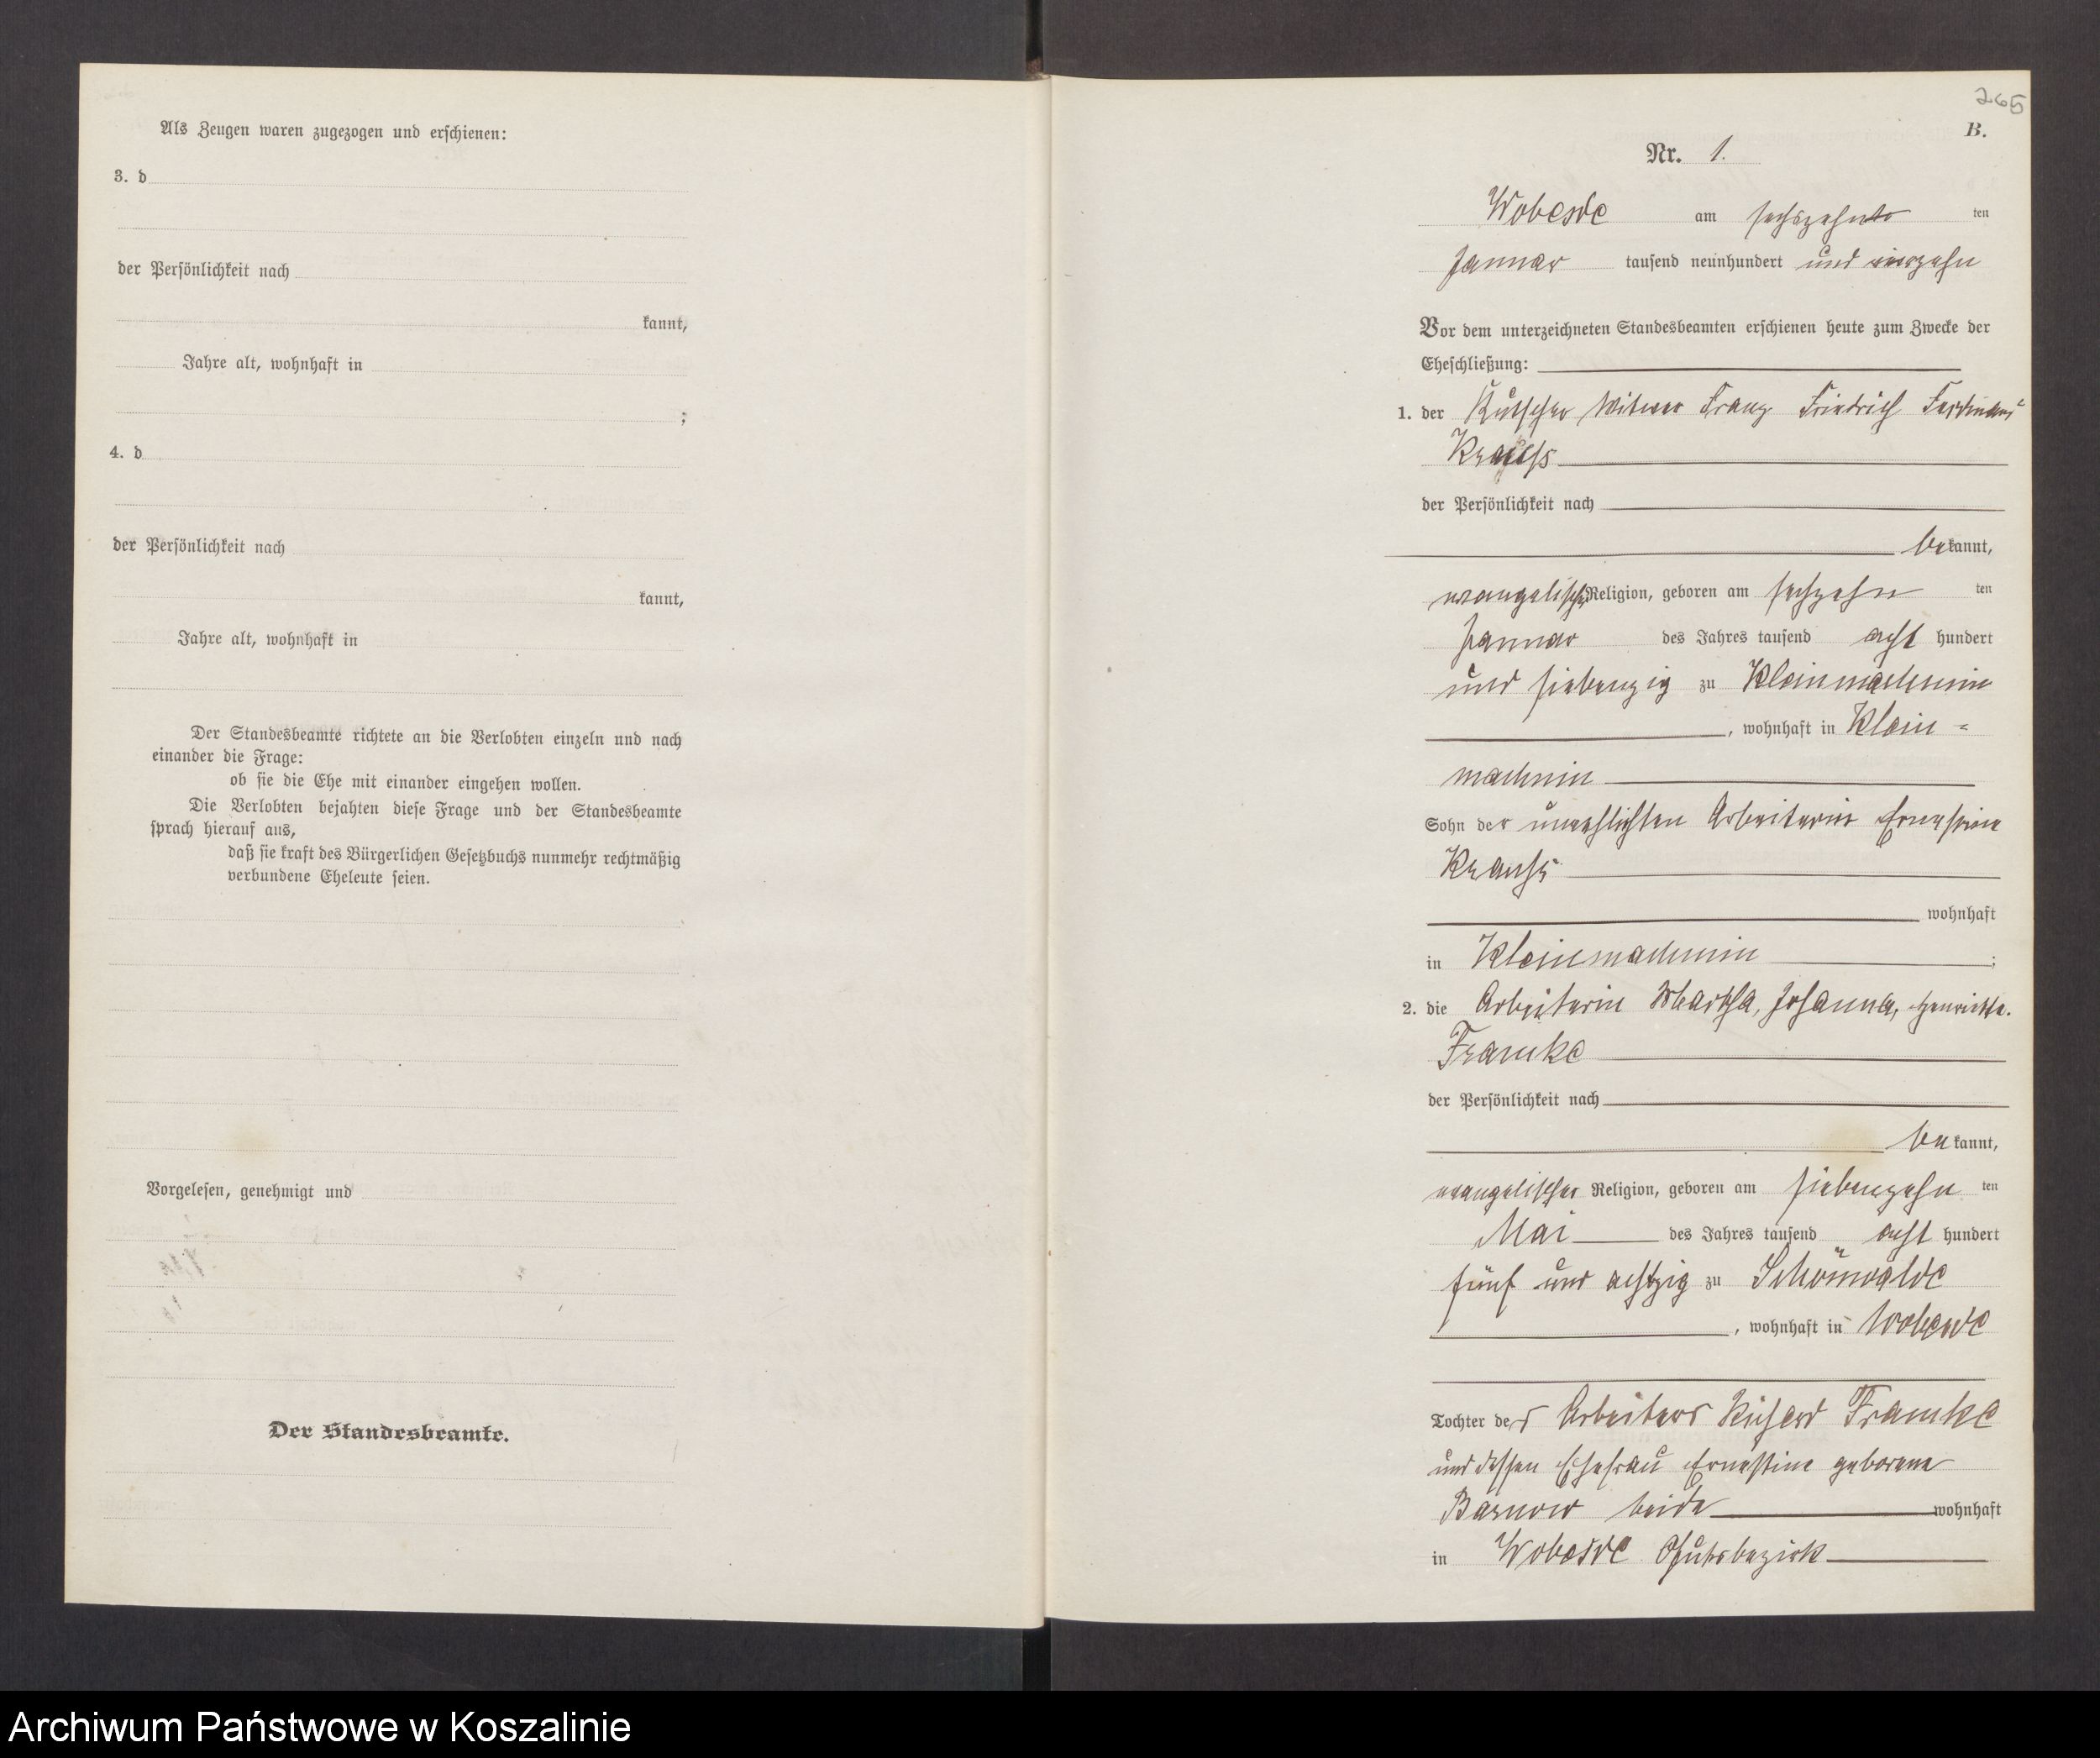 Als Zeugen waren zugezogen und erschienen:
3. d
der Persönlichkeit nach
kannt,
Jahre alt, wohnhaft in
;
4. d
der Persönlichkeit nach
kannt,
Jahre alt, wohnhaft in
Der Standesbeamte richtete an die Verlobten einzeln und nach
einander die Frage:
ob sie die Ehe mit einander eingehen wollen.
Die Verlobten bejahten diese Frage und der Standesbeamte
sprach hierauf aus,
daß sie kraft des Bürgerlichen Gesetzbuchs nunmehr rechtmäßig
verbundene Eheleute seien.
Vorgelesen, genehmigt und
Der Standesbeamte.
265
B.
Nr. 1.
Wobesde am sechszehnte ten
Januar tausend neunhundert und vierzehn
Vor dem unterzeichneten Standesbeamten erschienen heute zum Zwecke der
Eheschließung:
1. der Kutscher Witwer Franz Friedrich Ferdinand
Krauss
der Persönlichkeit nach
bekannt,
evangelischer Religion, geboren am sechzehn ten
Januar des Jahres tausend acht hundert
und siebenzig zu Kleinmachmin
, wohnhaft in Klein-
machmin
Sohn der unverehelichten Arbeiterin Ernestine
Krauss
wohnhaft
in Kleinmachmin ;
2. die Arbeiterin Martha, Johanna, Henriette.
Framke
der Persönlichkeit nach
bekannt,
evangelischer Religion, geboren am siebenzehn ten
Mai des Jahres tausend acht hundert
fünf und achtzig zu Schönwalde
, wohnhaft in Wobesde
Tochter des Arbeiters Richard Framke
und dessen Ehefrau Ernestine geborene
Barnow beide wohnhaft
in Wobesde Gutsbezirk
Archiwum Państwowe w Koszalinie